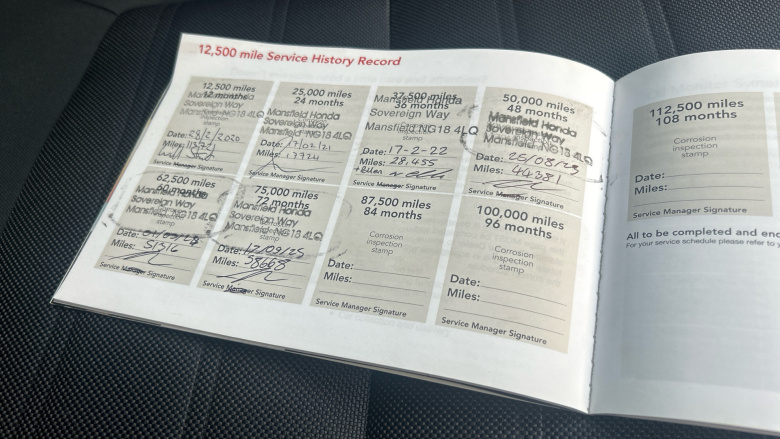 12,500 mile Service History Record
12,500 miles
12 months
Mansfield Honda
Sovereign Way
Mansfield NG18 4LQ
stamp
Date: 28/2/2020
Miles:
Service Manager Signature
25,000 miles
24 months
Mansfield Honda
Sovereign Way
Mansfield NG18 4LQ
stamp
Date: 17/02/21
Miles: 17724
Service Manager Signature
37,500 miles
36 months
Mansfield Honda
Sovereign Way
Mansfield NG18 4LQ
stamp
Date: 17-2-22
Miles: 28,455
Service Manager Signature
50,000 miles
48 months
Mansfield Honda
Sovereign Way
Mansfield NG18 4LQ
Date: 25/08/23
Miles: 44381
Service Manager Signature
62,500 miles
60 months
Mansfield Honda
Sovereign Way
Mansfield NG18 4LQ
stamp
Date:
Miles: 51516
Service Manager Signature
75,000 miles
72 months
Mansfield Honda
Sovereign Way
Mansfield NG18 4LQ
stamp
Date: 12/09/25
Miles: 58668
Service Manager Signature
87,500 miles
84 months
Corrosion
inspection
stamp
Date:
Miles:
Service Manager Signature
100,000 miles
96 months
Corrosion
inspection
stamp
Date:
Miles:
Service Manager Signature
112,500 miles
108 months
Corrosion
inspection
stamp
Date:
Miles:
Service Manager Signature
All to be completed and end
For your service schedule please refer to y